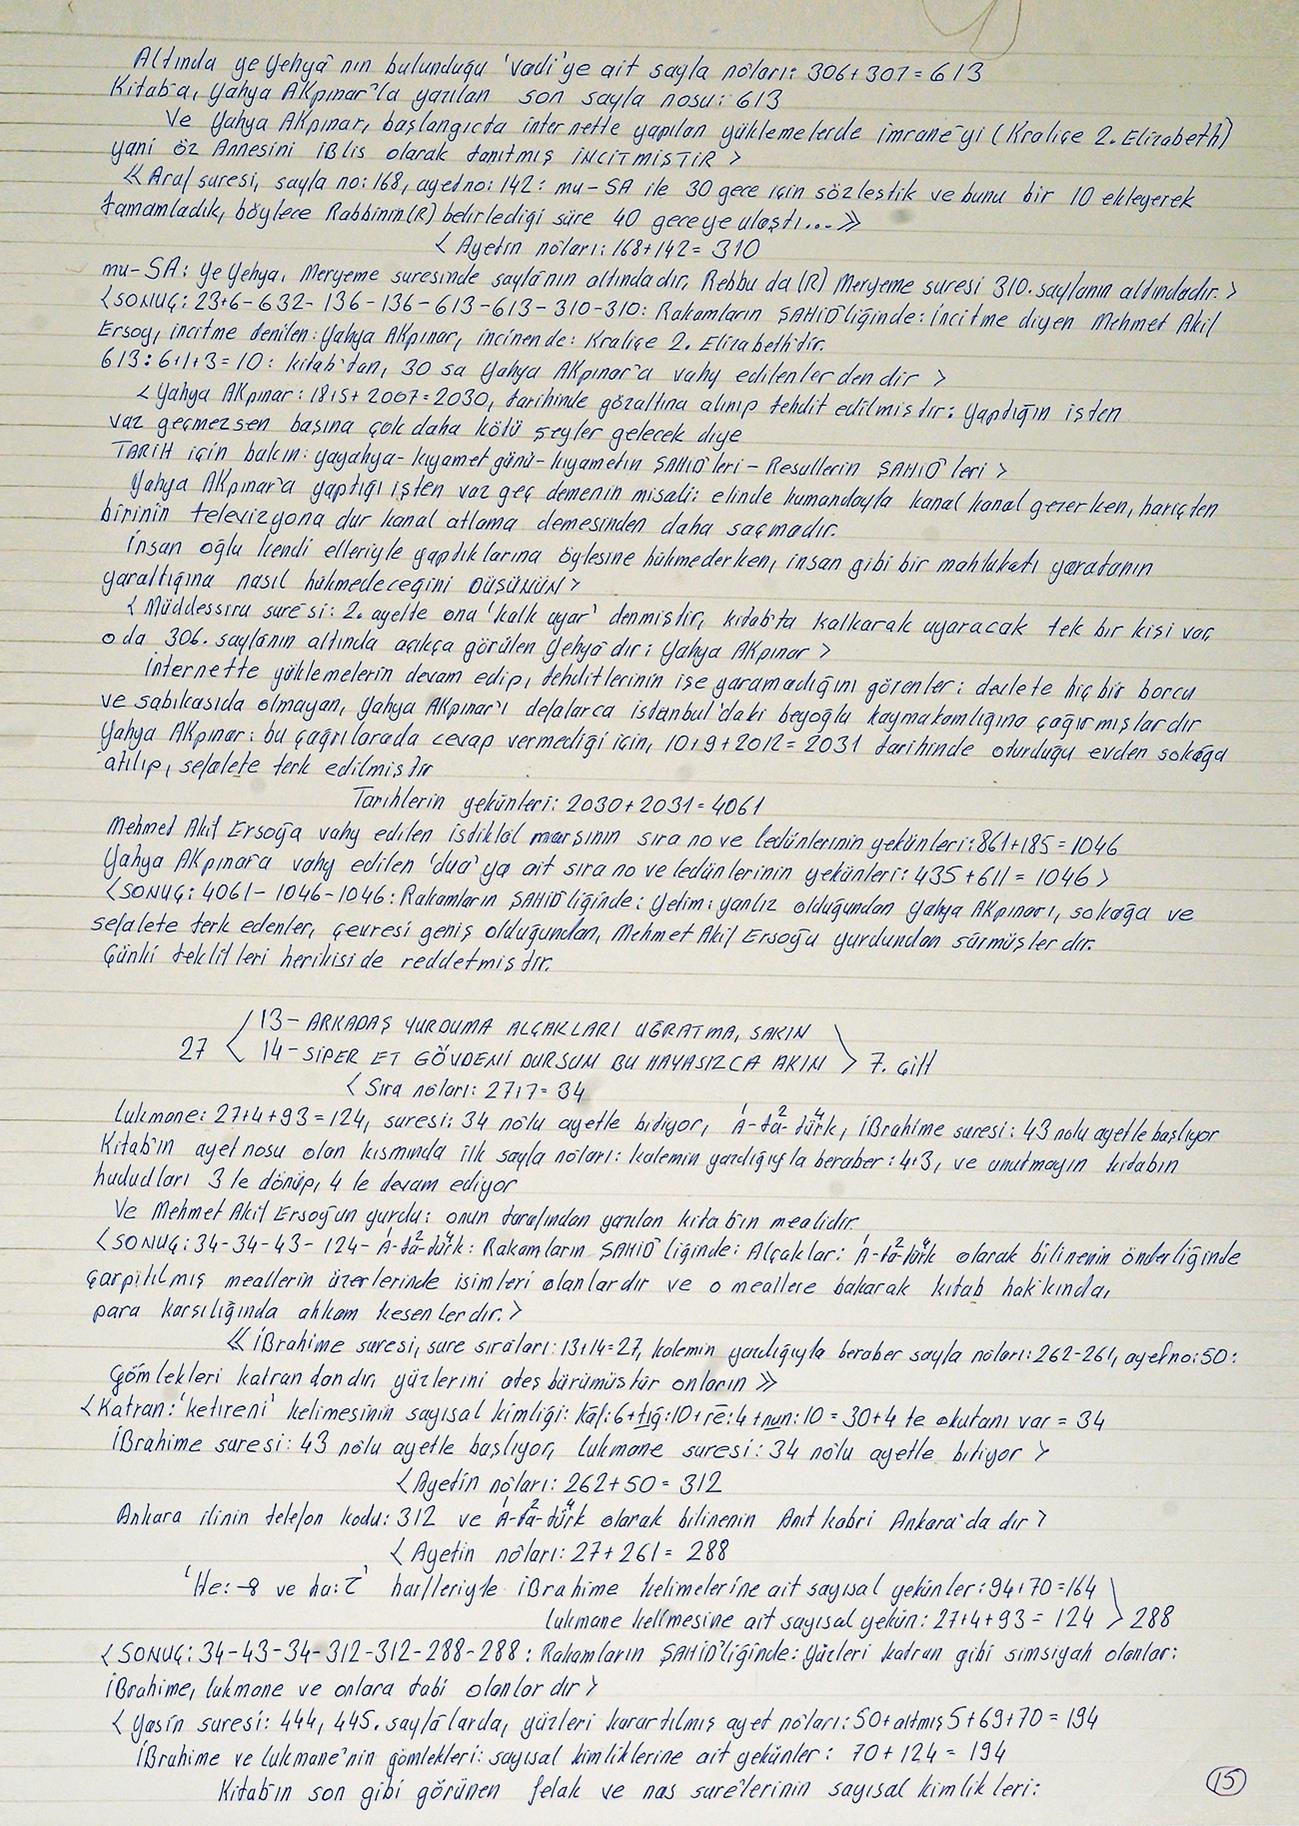 Altında ye Yehyâ nın bulunduğu 'vadi'ye ait sayfa nôları: 306+307=613
Kitab-a, Yahya AKpınar'la yazılan son sayfa nosu: 613
Ve Yahya AKpınar, başlangıcta internette yapılan yüklemelerde imrane'yi (Kraliçe 2. Elizabeth)
yani öz Annesini iBlis olarak tanıtmış İNCİTMİŞTİR >
≪ Araf suresi, sayfa no: 168, ayet no: 142: mu-SA ile 30 gece için sözleştik ve bunu bir 10 ekleyerek
tamamladık, böylece Rabbinin(R) belirlediği süre 40 geceye ulaştı... ≫
< Ayetin nôları: 168+142= 310
mu-SA: ye Yehya, Meryeme suresinde sayfânın altındadır, Rebbu da (R) Meryeme suresi 310. sayfanın altındadır. >
< SONUÇ: 23+6-632-136-136-613-613-310-310: Rakamların ŞAHİD'liğinde: incitme diyen Mehmet Akif
Ersoy, incitme denilen: Yahya AKpınar, incinen de: Kraliçe 2. Elizabeth'dir.
613: 6+1+3=10: kitab'tan, 30 sa Yahya AKpınar'a vahy edilenlerdendir >
< Yahya AKpınar: 18+5+2007=2030, tarihinde gözaltına alınıp tehdit edilmiştir: Yaptığın işten
vaz geçmezsen başına çok daha kötü şeyler gelecek diye
TARİH için bakın: yayahya-kıyamet günü-kıyametin ŞAHİD'leri-Resullerin ŞAHİD'leri >
Yahya AKpınar'a yaptığı işten vaz geç demenin misali: elinde kumandayla kanal kanal gezerken, hariçten
birinin televizyona dur kanal atlama demesinden daha saçmadır.
İnsan oğlu kendi elleriyle yaptıklarına öylesine hükmederken, insan gibi bir mahlukatı yaratanın
yarattığına nasıl hükmedeceğini DÜŞÜNÜN >
< Müddessiru suresi: 2. ayette ona 'kalk uyar' denmiştir, kitab'ta kalkarak uyaracak tek bir kişi var,
o da 306. sayfânın altında açıkça görülen Yehyâ dır: Yahya AKpınar >
internette yüklemelerin devam edip, tehditlerinin işe yaramadığını görenler: devlete hiç bir borcu
ve sabıkasıda olmayan, Yahya AKpınar'ı defalarca istanbul'daki beyoğlu kaymakamlığına çağırmışlardır
Yahya AKpınar: bu çağrılarada cevap vermediği için, 10+9+2012=2031 tarihinde oturduğu evden sokağa
atılıp, sefalete terk edilmiştir
Tarihlerin yekünleri: 2030+2031=4061
Mehmed Akif Ersoğa vahy edilen istiklâl marşının sıra no ve ledünlerinin yekünleri: 861+185=1046
Yahya AKpınar'a vahy edilen 'dua' ya ait sıra no ve ledünlerinin yekünleri: 435+611=1046 >
< SONUÇ: 4061-1046-1046: Rakamların ŞAHİD'liğinde: Yetim: yanlız olduğundan Yahya AKpınarı, sokağa ve
sefalete terk edenler, çevresi geniş olduğundan, Mehmet Akif Ersoğu yurdundan sürmüşlerdir.
Çünki teklifleri herikiside reddetmiştir.
13-ARKADAŞ YURDUMA ALÇAKLARI UĞRATMA, SAKIN
27 < 14-SİPER ET GÖVDENİ DURSUN BU HAYASIZCA AKIN > 7. çift
< Sıra nôları: 27+7=34
Lukmane: 27+4+93=124, suresi: 34 nôlu ayetle bitiyor, A-ta-türk, iBrahime suresi: 43 nolu ayetle başlıyor
Kitab'ın ayet nosu olan kısmında ilk sayfa nôları: kalemin yazdığıyla beraber: 4+3, ve unutmayın kitabın
hududları 3 le dönüp, 4 le devam ediyor
Ve Mehmet Akif Ersoğ'un yurdu: onun tarafından yazılan kitab'ın mealidir.
< SONUÇ: 34-34-43-124-A-ta-türk: Rakamların ŞAHİD'liğinde: Alçaklar: A-ta-türk olarak bilinenin önderliğinde
çarpıtılmış meallerin üzerlerinde isimleri olanlardır ve o meallere bakarak kitab hakkında,
para karşılığında ahkam kesenlerdir. >
≪ iBrahime suresi, sure sıraları: 13+14=27, kalemin yazdığıyla beraber sayfa nôları: 262-261, ayet no: 50:
Gömlekleri katrandandır, yüzlerini ateş bürümüştür onların ≫
< Katran: 'ketıreni' kelimesinin sayısal kimliği: kâf: 6+tığ: 10+rē: 4+nun: 10=30+4 te okutanı var=34
iBrahime suresi: 43 nôlu ayetle başlıyor, lukmane suresi: 34 nôlu ayetle bitiyor >
< Ayetin nôları: 262+50=312
Ankara ilinin telefon kodu: 312 ve A-ta-türk olarak bilinenin Anıt kabri Ankara'da dır >
< Ayetin nôları: 27+261= 288
'He: ve ha: ' harfleriyle iBrahime kelimelerine ait sayısal yekünler: 94+70=164
lukmane kelimesine ait sayısal yekün: 27+4+93= 124 > 288
< SONUÇ: 34-43-34-312-312-288-288: Rakamların ŞAHİD'liğinde: Yüzleri katran gibi simsiyah olanlar:
iBrahime, lukmane ve onlara tabi olanlardır >
< Yasin suresi: 444, 445. sayfâlarda, yüzleri karartılmış ayet nôları: 50+altmış 5+69+70=194
iBrahime ve lukmane'nin gömlekleri: sayısal kimliklerine ait yekünler: 70+124= 194
Kitab'ın son gibi görünen felak ve nas sure'lerinin sayısal kimlikleri:
15